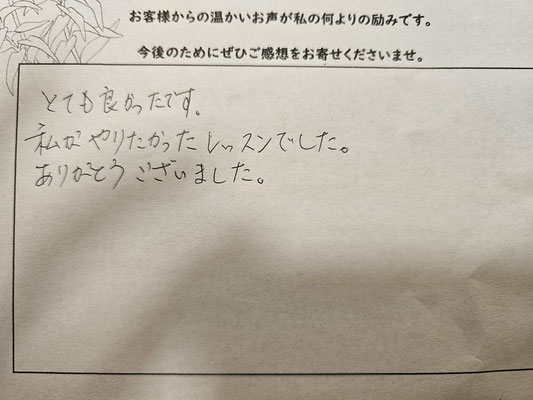 お客様からの温かいお声が私の何よりの励みです。
今後のためにぜひご感想をお寄せくださいませ。
とても良かったです。
私がやりたかったレッスンでした。
ありがとうございました。